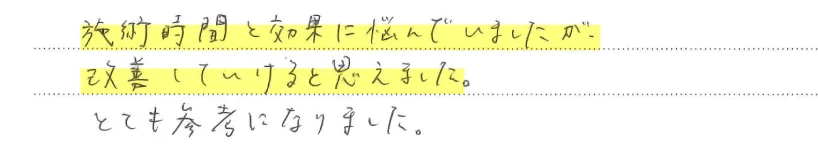 施術時間と効果に悩んでいましたが、
改善していけると思えました。
とても参考になりました。